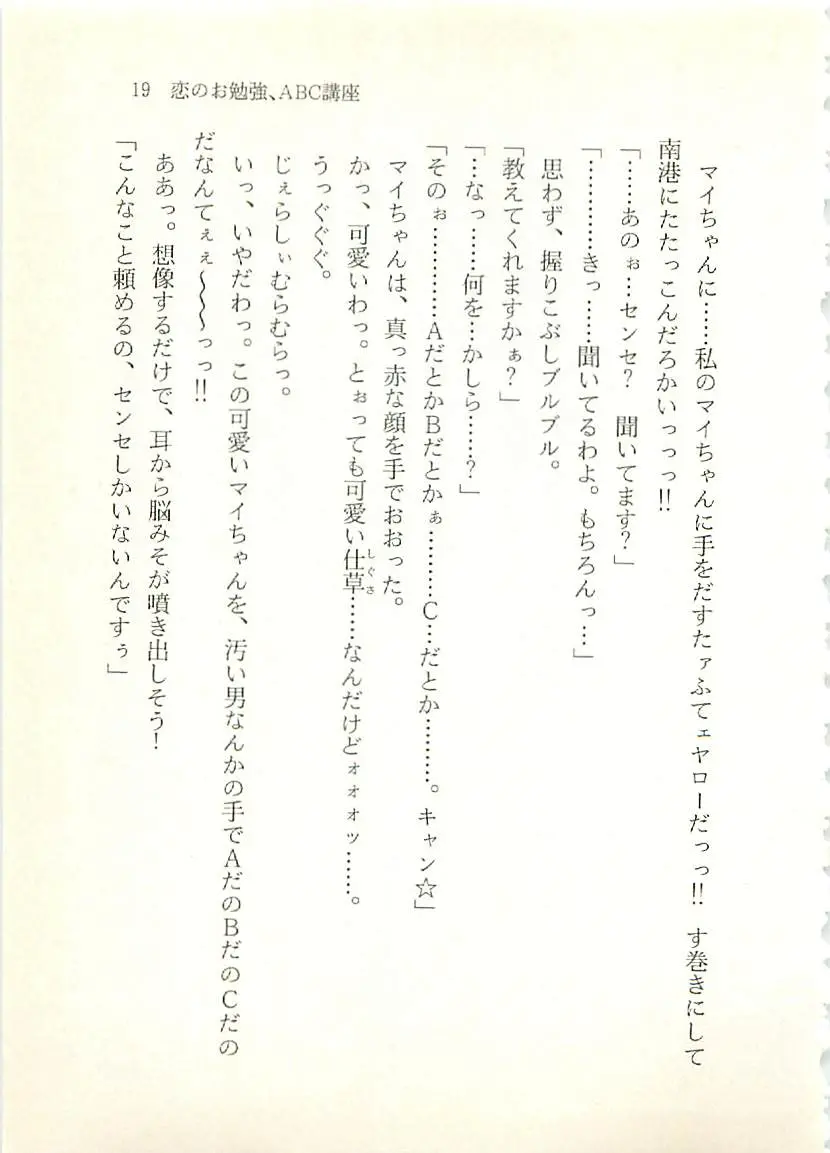 19　恋のお勉強、ABC講座
　マイちゃんに……私のマイちゃんに手をだすたァふてェヤローだっっ!!　す巻きにして
南港にたたっこんだろかいっっっ!!
「……あのぉ…センセ？　聞いてます？」
「…………きっ……聞いてるわよ。もちろんっ…」
　思わず、握りこぶしブルブル。
「教えてくれますかぁ？」
「…なっ……何を…かしら……？」
「そのぉ…………AだとかBだとかぁ………C…だとか………。キャン☆」
　マイちゃんは、真っ赤な顔を手でおおった。
　かっ、可愛いわっ。とぉっても可愛い仕草……なんだけどォォォッ……。
　うっぐぐぐ。
　じぇらしぃむらむらっ。
　いっ、いやだわっ。この可愛いマイちゃんを、汚い男なんかの手でAだのBだのCだの
だなんてぇぇ〜〜〜っっ!!
　ああっ。想像するだけで、耳から脳みそが噴き出しそう！
「こんなこと頼めるの、センセしかいないんですぅ」